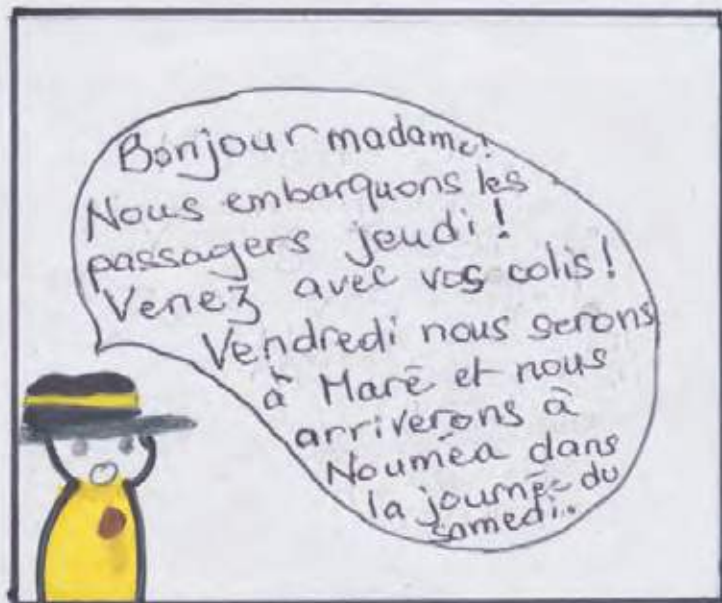 Bonjour madame!
Nous embarquons les
passagers jeudi!
Venez avec vos colis!
Vendredi nous serons
à Maré et nous
arriverons à
Nouméa dans
la journée du
samedi..